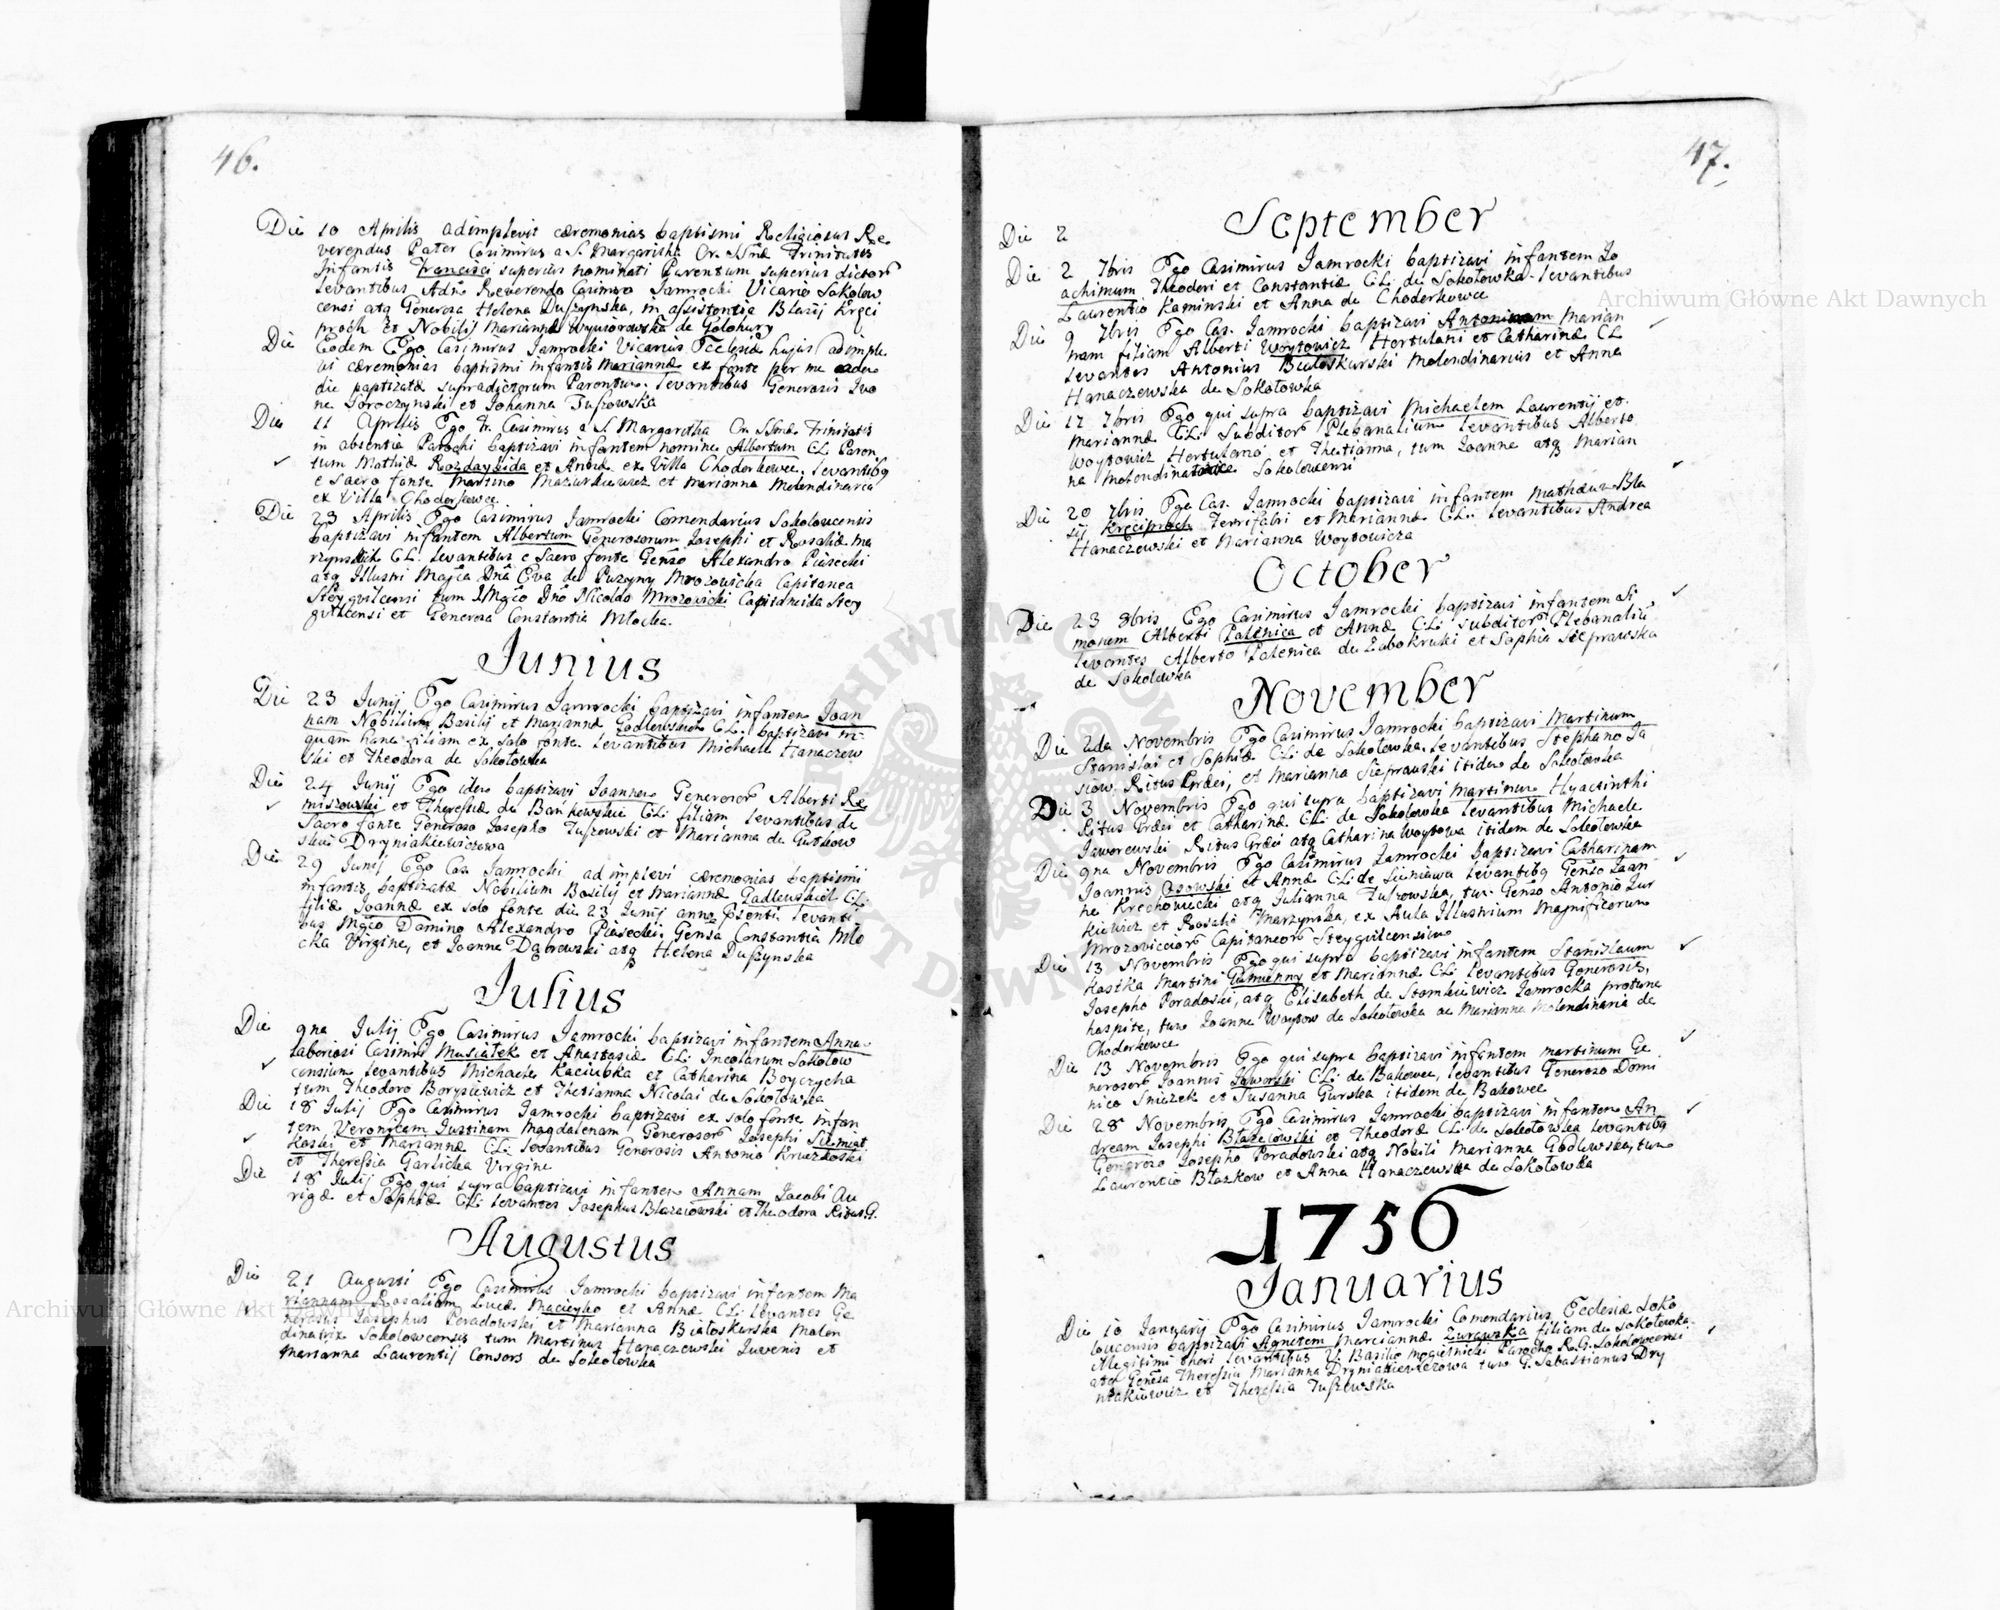 46.
Die 10 Aprilis adimplevit cæremonias baptismi Religiosus Re
verendus Pater Casimirus a S. Margaritha Or. SSmæ Trinitatis
Infantis Francisci superius nominati Parentum superius dictor
levantibus Adm Reverendo Casimiro Jamrocki Vicario Sokolow
censi atq Generosa Helena Duszynska, in assistentia Blasij Kręci
proch et Nobilis Marianna de Golohury
Die Eodem Ego Casimirus Jamrocki Vicarius Ecclesiæ hujus adimple
vi cæremonias baptismi infantis Mariannæ ex fonte per me eade
die baptizatæ supradictorum Parentum. levantibus Generosis Ivo
ne Goroczynski et Johanna Tuszowska
Die 11 Aprilis Ego Fr. Casimirus a S. Margaritha Or. SSmæ Trinitatis
in absentia Parochi baptizavi infantem nomine Albertum CL Paren
tum Mathiæ Rozdaybida et Annæ ex Villa Choderkowce. levantibq
e Sacro fonte Martino Mazurkiewicz et Marianna Molendinaria
ex Villa Choderkowce
Die 23 Aprilis Ego Casimirus Jamrocki Comendarius Sokolovcensis
baptizavi infantem Albertum Generosorum Josephi et Rosaliæ Ma
rzynskich CL. levantibus e Sacro fonte Genso Alexandro Piasecki
atq Illustri Magca Dna Eva de Puzyny Mrozowicka Capitanea
Steygvilcensi tum IMgco Dno Nicolao Mrozowicki Capitaneida Stey
gvilcensi et Generosa Constantia Mlocka.
Junius
Die 23 Junij Ego Casimirus Jamrocki baptizavi infantem Joan
nam Nobilium Basilij et Mariannæ Godlewskich CL. baptizavi in
quam hanc filiam ex solo fonte. levantibus Michaele Hanaczew
ski et Theodora de Sokołowka
Die 24 Junij Ego idem baptizavi Joannem Generosor Alberti Re
miszowski et Theressiæ de Bańkowskie CL. filiam levantibus de
Sacro fonte Generoso Josepho Tuszowski et Marianna de Gutkow
skie Dryniakiewiczowa
Die 29 Junij Ego Cas. Jamrocki adimplevi cæremonias baptismi
infantis baptizatæ Nobilium Basilij et Mariannæ Godlewskich CL.
filiæ Joannæ ex solo fonte die 23 Junij anno psenti levanti
bus Mgco Domino Alexandro Piasecki Gensa Constantia Mło
cka Virgine, et Joanne Dąbrowski atq Helena Duszynska
Julius
Die 9na Julij Ego Casimirus Jamrocki baptizavi infantem Anna
Laboriosi Casimiri Musiałek et Anastasiæ CL. Incolarum Sokołow
censium levantibus Michaele Kaciubka et Catharina Boyczycha
tum Theodoro Borysiewicz et Thetianna Nicolai de Sokołowka
Die 18 Julij Ego Casimirus Jamrocki baptizavi ex solo fonte infan
tem Veronicam Justinam Magdalenam Generosor Josephi Siemiat
koski et Mariannæ CL. levantibus Generosis Antonio Kruczkoski
et Theressia Garlicka Virgine
Die 18 Julij Ego qui supra baptizavi infantem Annam Jacobi Au
rigæ et Sophiæ CL. levantes Josephus Błazeiowski et Theodora Ritus G.
Augustus
Die 21 Augusti Ego Casimirus Jamrocki baptizavi infantem Ma
riannam Rosaliam Lucæ Macieyko et Annæ CL. levantes Ge
nerosus Josephus Poradowski et Marianna Białoskurska Molen
dinatrix Sokolovcensis tum Martinus Hanaczewski Juvenis et
Marianna Laurentij Consors de Sokołowka
47.
September
Die 2
Die 2 7bris Ego Casimirus Jamrocki baptizavi infantem Jo
achimum Theodori et Constantiæ CL. de Sokołowka. levantibus
Laurentio Kaminski et Anna de Choderkowce
Die 9 7bris Ego Cas. Jamrocki baptizavi Marian
nam filiam Alberti Woytowicz Hortulani et Catharinæ CL
levantes Antonius Białoskurski Molendinarius et Anna
Hanaczewska de Sokołowka
Die 17 7bris Ego qui supra baptizavi Michaelem Laurentij et
Mariannæ CL. Subditor Plebanalium levantibus Alberto
Woytowicz Hortulano et Thetianna, tum Joanne atq Marian
na Sokolowcensi
Die 20 7bris Ego Cas. Jamrocki baptizavi infantem Mathæum Bla
sij Kręciproch Ferrifabri et Mariannæ CL. levantibus Andrea
Hanaczewski et Marianna Woytowicza
October
Die 23 8bris Ego Casimirus Jamrocki baptizavi infantem Si
monem Alberti Palenica et Annæ CL. subditor Plebanaliu
levantes Alberto Palenica de Zabokruki et Sophia Sieprawska
de Sokołowka
November
Die 2da Novembris Ego Casimirus Jamrocki baptizavi Martinum
Stanislai et Sophiæ CL. de Sokołowka. levantibus Stephano Ja
siow, Ritus Græci, et Marianna Sieprawski itidem de Sokołowka
Die 3 Novembris Ego qui supra baptizavi Martinum Hyacinthi
Ritus Græci et Catharinæ CL. de Sokołowka levantibus Michaele
Jaworewski Ritus Græci atq Catharina Woytowa itidem de Sokołowka
Die 9na Novembris Ego Casimirus Jamrocki baptizavi Catharinam
Joannis Osowski et Annæ CL. de Sieniawa levantibq Genso Joan
ne Krechowiecki atq Julianna Tuszowska, tum Genso Antonio Jur
kiewicz et Rosalia Marzynska, ex Aula Illustrium Magnificorum
Mrozoviccior Capitaneor Steygvilcensium
Die 13 Novembris Ego qui supra baptizavi infantem Stanislaum
Kostka Martini Gumienny et Mariannæ CL. levantibus Generosis,
Josepho Poradoski, atq Elisabeth de Stomkiewicz Jamrocka protunc
hospite, tum Joanne Woytow de Sokołowka ac Marianna Molendinaria de
Choderkowce
Die 13 Novembris Ego qui supra baptizavi infantem Martinum Ge
nerosor Joannis Jaworski CL. de Bakowce, levantibus Generoso Domi
nico Sniezek et Susanna Gurska itidem de Bakowce
Die 28 Novembris Ego Casimirus Jamrocki baptizavi infantem An
dream Josephi Błazeiowski et Theodoræ CL. de Sokołowka levantibq
Generoso Josepho Poradowski atq Nobili Marianna Godlewska, tum
Laurentio Błazkow et Anna Hanaczewska de Sokołowka
1756
Januarius
Die 10 Januarij Ego Casimirus Jamrocki Comendarius Ecclesiæ Soko
lovcensis baptizavi Agnetem Mariannæ Zurawska filiam de Sokołowka
illegitimi thori levantibus V. Basilio Mogielnicki Parocho R. G. Sokolowcensi
atq Gensa Theressia Marianna Dryniakiewiczowa tum G. Sabastianus Dry
niakiewicz et Theressia Tuszewska
Archiwum Główne Akt Dawnych
Archiwum Główne Akt Dawnych
ARCHIWUM GŁÓWNE AKT DAWNYCH